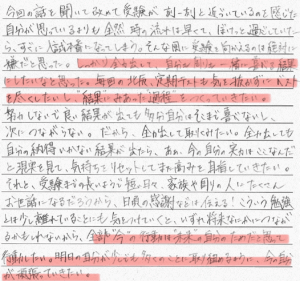 今回の話を聞いて改めて受験が刻一刻と近づいているのを感じた
自分が思っているよりも全然時の流れは早くて、ぼけっと過ごしていた
ら、すぐに
嫌だと思った。しっかり全力出して、自分も周りも一番に喜べる結果
にしたいなと思った。毎回の北辰、定期テストも気を抜かずにベスト
を尽くしたいし、"結果にみあった過程"をつくっていきたい。
努力しないで良い結果が出ても多分自分はそこまで喜べないし、
次につながらない。だから、全力出して取りくみたい。全力出しても
自分の納得いかない結果が出たら、ああ、今の自分の実力はここなんだ
と現実を見て、気持ちをリセットしてまた高みを目指していきたい。
それと、受験までの長いようで短い日々、家族や周りの人にたくさん
お世話になるだろうから、日頃の感謝などは伝える!こういう勉強
とは少し離れていることにも気をつけていくと、いずれ将来なにかにつなが
るかもしれないから、全部"今"の行動は"未来"の自分のためだと思って
行動したい。明日の自分が少しでも多くのことに取り組めるように、今の自分
が頑張っていきたい。